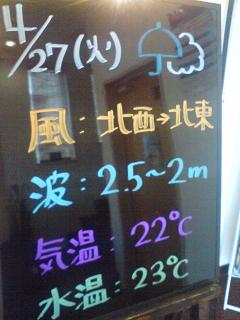 4/27(火)
風：北西→北東
波：2.5~2m
気温：22℃
水温：23℃